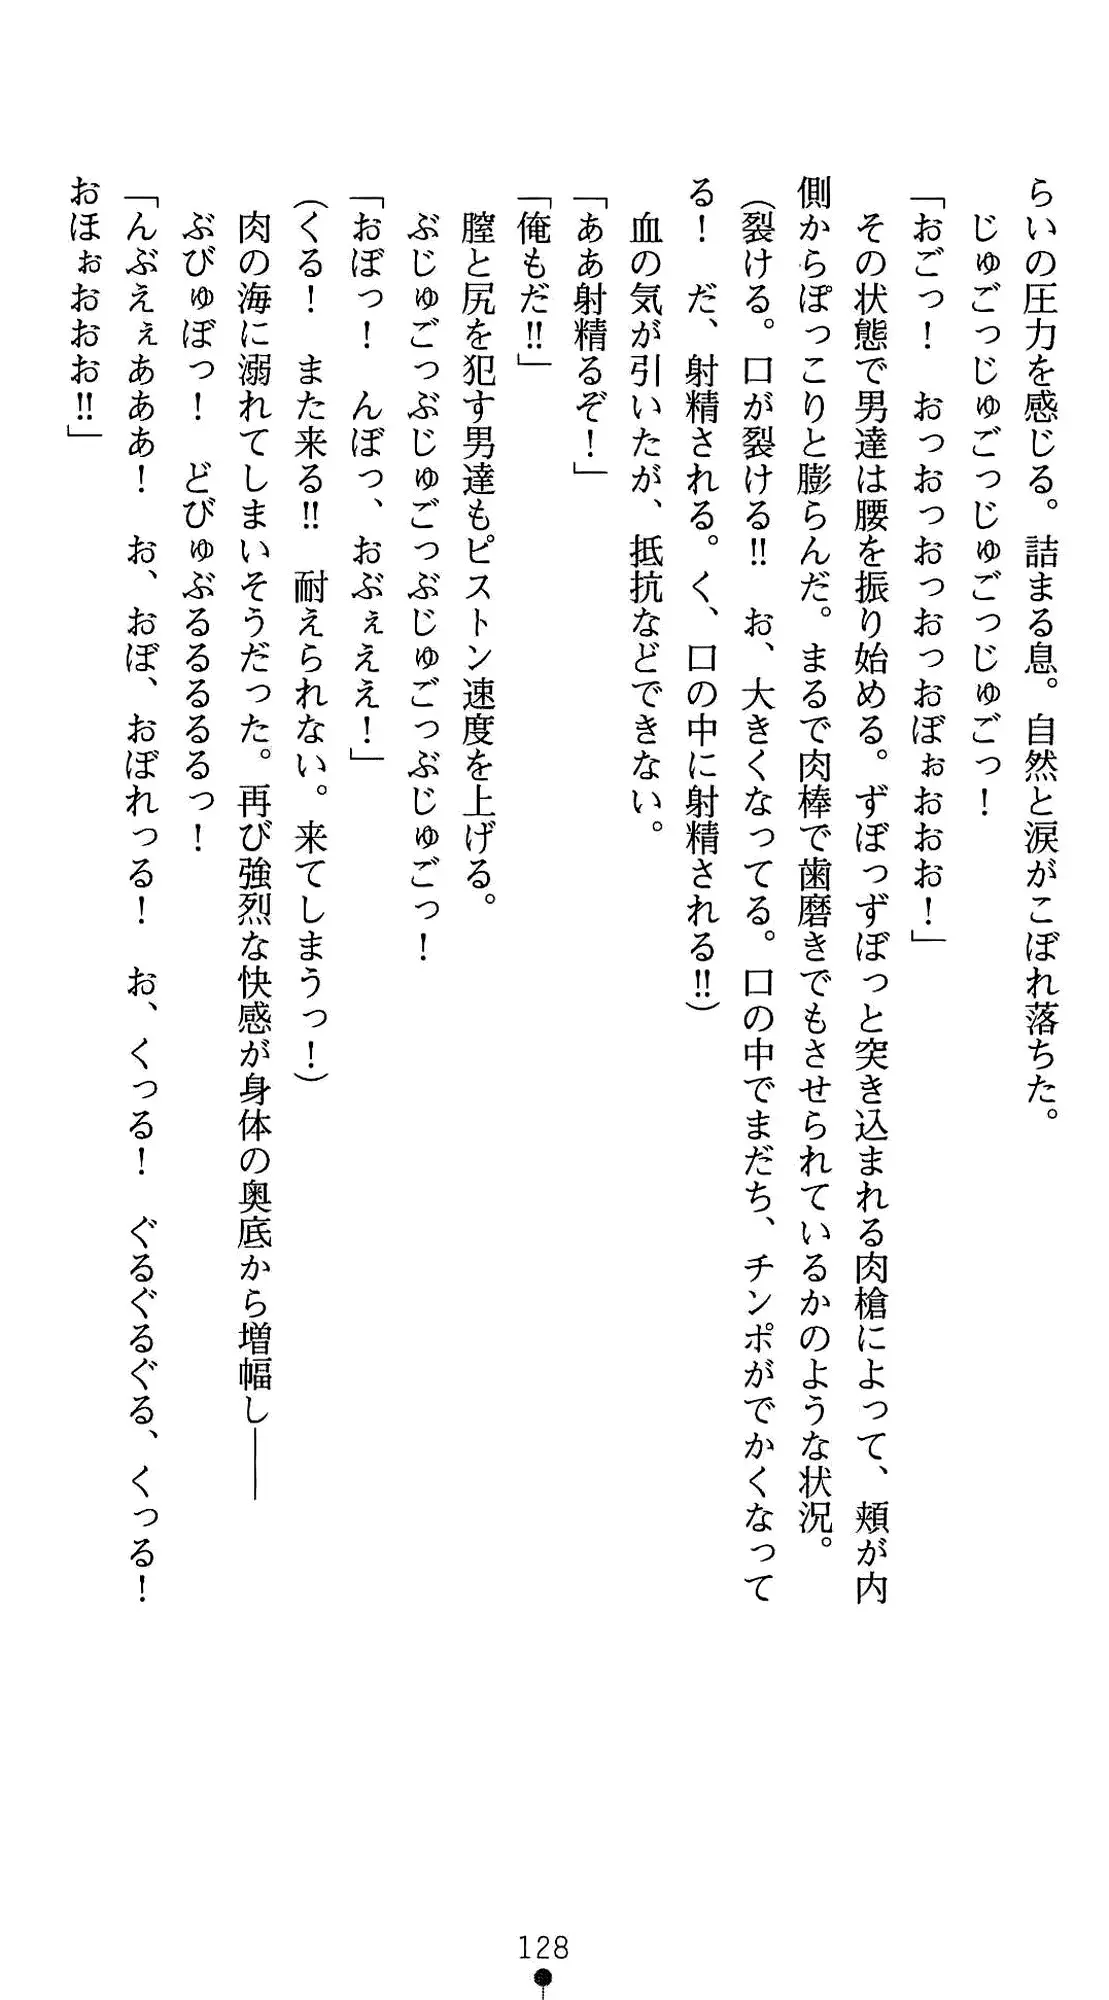 らいの圧力を感じる。詰まる息。自然と涙がこぼれ落ちた。
じゅごっじゅごっじゅごっじゅごっ！
「おごっ！　おっおっおっおっおぼぉおおお！」
その状態で男達は腰を振り始める。ずぼっずぼっと突き込まれる肉槍によって、頬が内
側からぽっこりと膨らんだ。まるで肉棒で歯磨きでもさせられているかのような状況。
（裂ける。口が裂ける!!　お、大きくなってる。口の中でまだち、チンポがでかくなって
る！　だ、射精される。く、口の中に射精される!!）
血の気が引いたが、抵抗などできない。
「ああ射精るぞ！」
「俺もだ!!」
膣と尻を犯す男達もピストン速度を上げる。
ぶじゅごっぶじゅごっぶじゅごっぶじゅごっ！
「おぼっ！　んぼっ、おぶぇええ！」
（くる！　また来る!!　耐えられない。来てしまうっ！）
肉の海に溺れてしまいそうだった。再び強烈な快感が身体の奥底から増幅し――
ぶびゅぼっ！　どびゅぶるるるるるっ！
「んぶえぇあああ！　お、おぼ、おぼれっる！　お、くっる！　ぐるぐるぐる、くっる！
おほぉおおお!!」
128